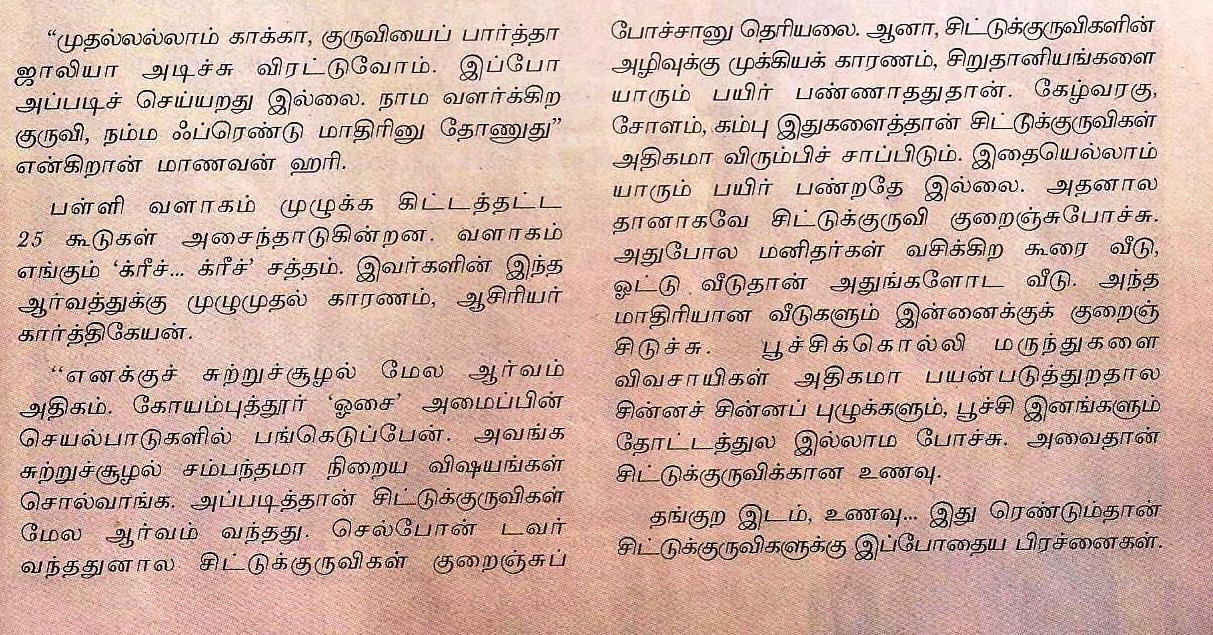 “முதல்லல்லாம் காக்கா, குருவியைப் பார்த்தா
ஜாலியா அடிச்சு விரட்டுவோம். இப்போ
அப்படிச் செய்யறது இல்லை. நாம வளர்க்கிற
குருவி, நம்ம ஃப்ரெண்டு மாதிரினு தோணுது”
என்கிறான் மாணவன் ஹரி.
பள்ளி வளாகம் முழுக்க கிட்டத்தட்ட
25 கூடுகள் அசைந்தாடுகின்றன. வளாகம்
எங்கும் ‘க்ரீச்... க்ரீச்’ சத்தம். இவர்களின் இந்த
ஆர்வத்துக்கு முழுமுதல் காரணம், ஆசிரியர்
கார்த்திகேயன்.
‘‘எனக்குச் சுற்றுச்சூழல் மேல ஆர்வம்
அதிகம். கோயம்புத்தூர் ‘ஓசை’ அமைப்பின்
செயல்பாடுகளில் பங்கெடுப்பேன். அவங்க
சுற்றுச்சூழல் சம்பந்தமா நிறைய விஷயங்கள்
சொல்வாங்க. அப்படித்தான் சிட்டுக்குருவிகள்
மேல ஆர்வம் வந்தது. செல்போன் டவர்
வந்ததுனால சிட்டுக்குருவிகள் குறைஞ்சுப்
போச்சானு தெரியலை. ஆனா, சிட்டுக்குருவிகளின்
அழிவுக்கு முக்கியக் காரணம், சிறுதானியங்களை
யாரும் பயிர் பண்ணாததுதான். கேழ்வரகு,
சோளம், கம்பு இதுகளைத்தான் சிட்டுக்குருவிகள்
அதிகமா விரும்பிச் சாப்பிடும். இதையெல்லாம்
யாரும் பயிர் பண்றதே இல்லை. அதனால
தானாகவே சிட்டுக்குருவி குறைஞ்சுபோச்சு.
அதுபோல மனிதர்கள் வசிக்கிற கூரை வீடு,
ஓட்டு வீடுதான் அதுங்களோட வீடு. அந்த
மாதிரியான வீடுகளும் இன்னைக்குக் குறைஞ்
சிடுச்சு. பூச்சிக்கொல்லி மருந்துகளை
விவசாயிகள் அதிகமா பயன்படுத்துறதால
சின்னச் சின்னப் புழுக்களும், பூச்சி இனங்களும்
தோட்டத்துல இல்லாம போச்சு. அவைதான்
சிட்டுக்குருவிக்கான உணவு.
தங்குற இடம், உணவு... இது ரெண்டும்தான்
சிட்டுக்குருவிகளுக்கு இப்போதைய பிரச்னைகள்.